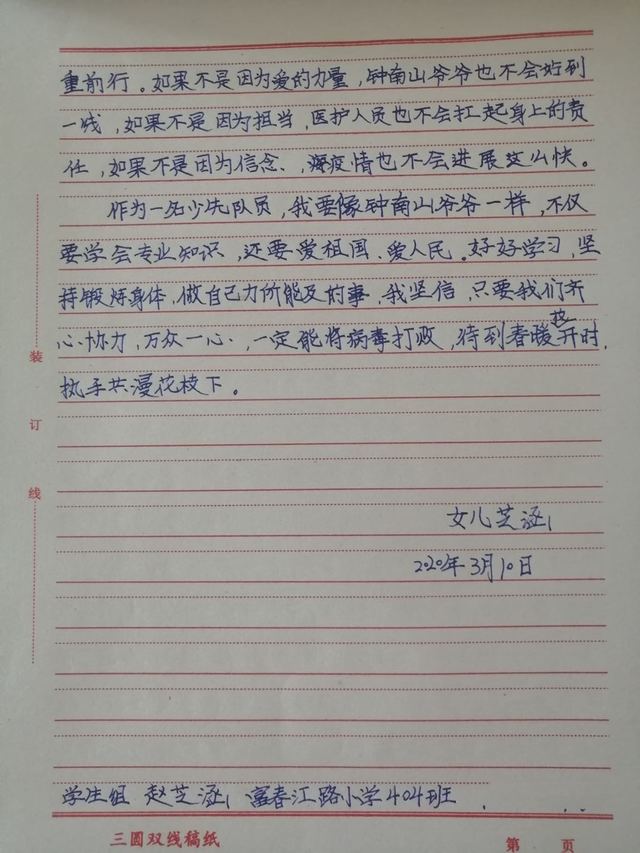 重前行。如果不是因为爱的力量，钟南山爷爷也不会站到
一线，如果不是因为担当，医护人员也不会扛起身上的责
任，如果不是因为信念、，疫情也不会进展这么快。
作为一名少先队员，我要像钟南山爷爷一样，不仅
要学会专业知识，还要爱祖国、爱人民。好好学习，坚
持锻炼身体，做自己力所能及的事，我坚信，只要我们齐
心协力，万众一心、，一定能将病毒打败，待到春暖花开时，
执手共漫花枝下。
装
订
线
女儿芝涵
2020年3月10日
学生组 赵芝涵 富春江路小学404班
三圆双线稿纸
第 页